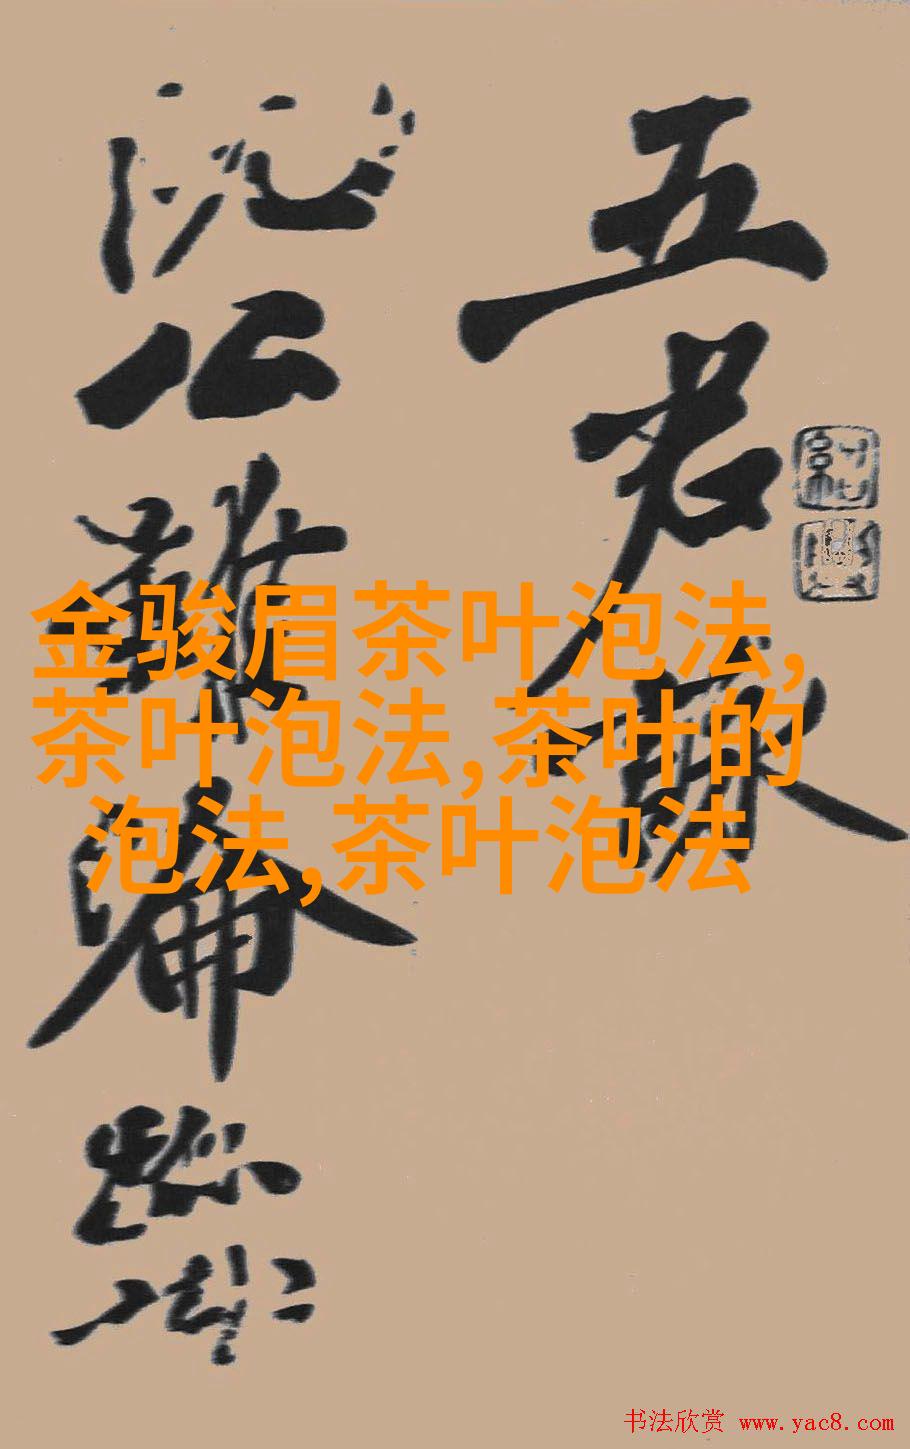 五君詠
阮公雖淪跡
金骏眉茶叶泡法,
茶叶泡法,茶叶的
泡法,茶叶泡法
书法欣赏 www.yac8.com